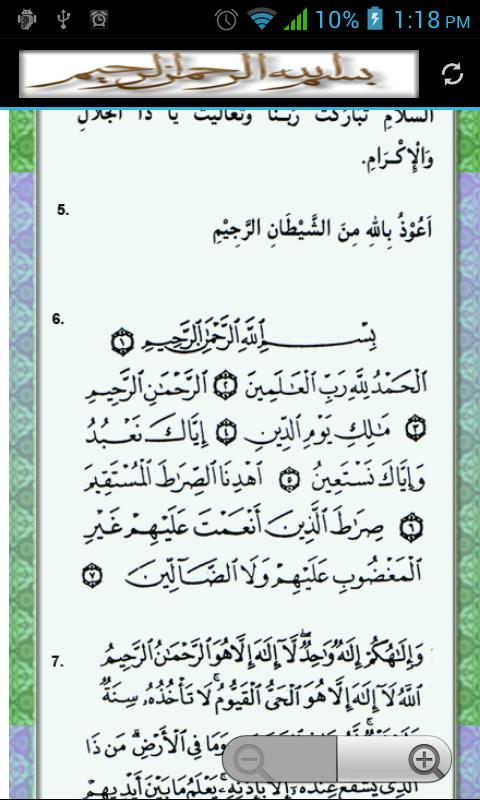 10% 1:18 PM
بسم الله الرحمن الرحيم
السَّلَامُ تَبَارَكْتَ رَبَّنَا وَتَعَالَيْتَ يَا ذَا الْجَلَالِ
وَالْإِكْرَامِ.
5.
اَعُوْذُ بِاللهِ مِنَ الشَّيْطَانِ الرَّجِيْمِ
6.
بِسْمِ اللَّهِ الرَّحْمَٰنِ الرَّحِيمِ ١
الْحَمْدُ لِلَّهِ رَبِّ الْعَالَمِينَ ٢ الرَّحْمَٰنِ الرَّحِيمِ
٣ مَالِكِ يَوْمِ الدِّينِ ٤ إِيَّاكَ نَعْبُدُ
وَإِيَّاكَ نَسْتَعِينُ ٥ اهْدِنَا الصِّرَاطَ الْمُسْتَقِيمَ
٦ صِرَاطَ الَّذِينَ أَنْعَمْتَ عَلَيْهِمْ غَيْرِ
الْمَغْضُوبِ عَلَيْهِمْ وَلَا الضَّالِّينَ ٧
7.
وَإِلَٰهُكُمْ إِلَٰهٌ وَاحِدٌ ۖ لَا إِلَٰهَ إِلَّا هُوَ الرَّحْمَٰنُ الرَّحِيمُ
اللَّهُ لَا إِلَٰهَ إِلَّا هُوَ الْحَيُّ الْقَيُّومُ ۚ لَا تَأْخُذُهُ سِنَةٌ
وَمَا فِي الْأَرْضِ ۗ مَن ذَا
الَّذِي يَشْفَعُ عِندَهُ إِلَّا بِإِذْنِهِ ۚ يَعْلَمُ مَا بَيْنَ أَيْدِيهِمْ